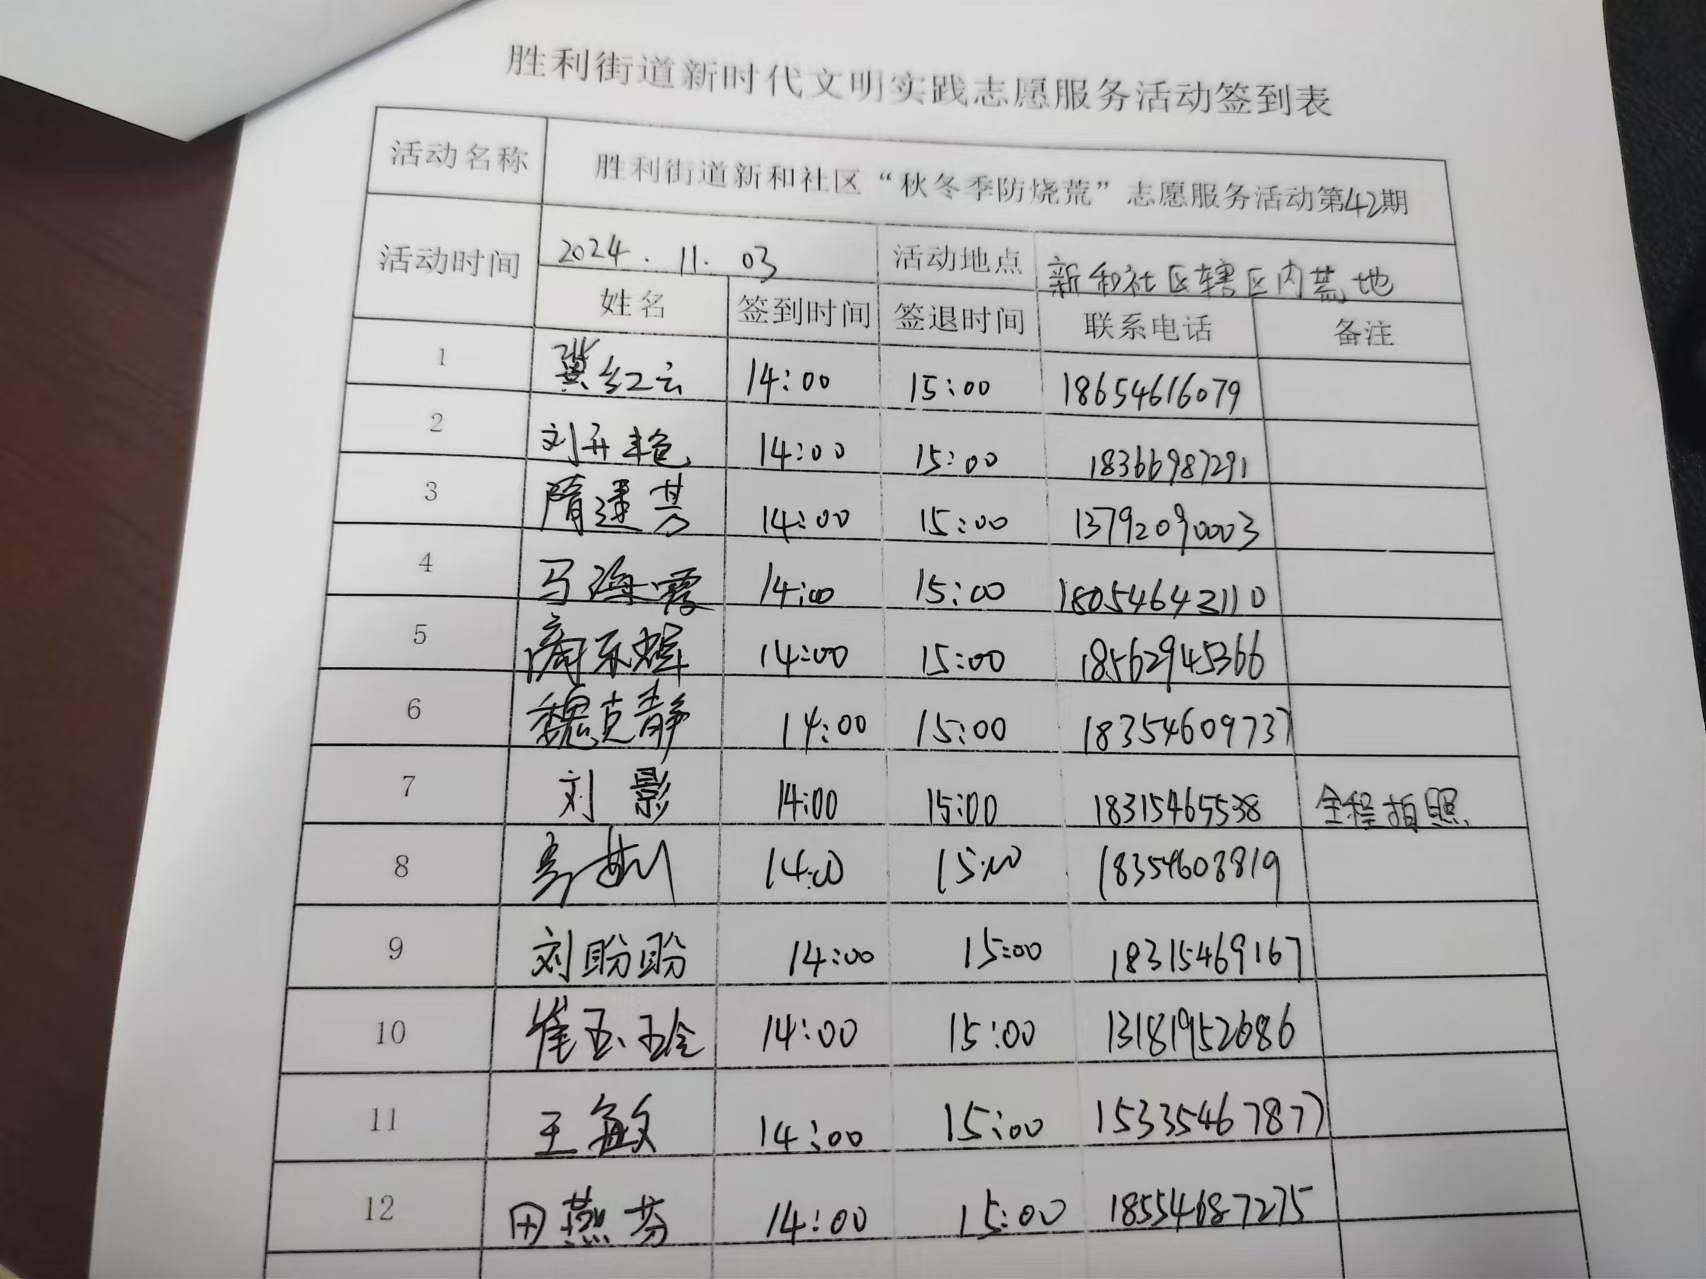 胜利街道新时代文明实践志愿服务活动签到表
活动名称 胜利街道新和社区“秋冬季防烧荒”志愿服务活动第42期
活动时间 2024.11.03 活动地点 新和社区辖区内荒地
姓名 签到时间 签退时间 联系电话 备注
1 冀红云 14:00 15:00 18654616079
2 刘开艳 14:00 15:00 18366987291
3 隋建芳 14:00 15:00 13792090003
4 马海霞 14:00 15:00 18054643110
5 14:00 15:00 18562945366
6 魏克静 14:00 15:00 18354609737
7 刘影 14:00 15:00 18315465538 全程拍照
8 14:00 15:00 18354608819
9 刘盼盼 14:00 15:00 18315469167
10 崔玉玲 14:00 15:00 13181952686
11 王敏 14:00 15:00 15335467877
12 田燕芬 14:00 15:00 18554687275